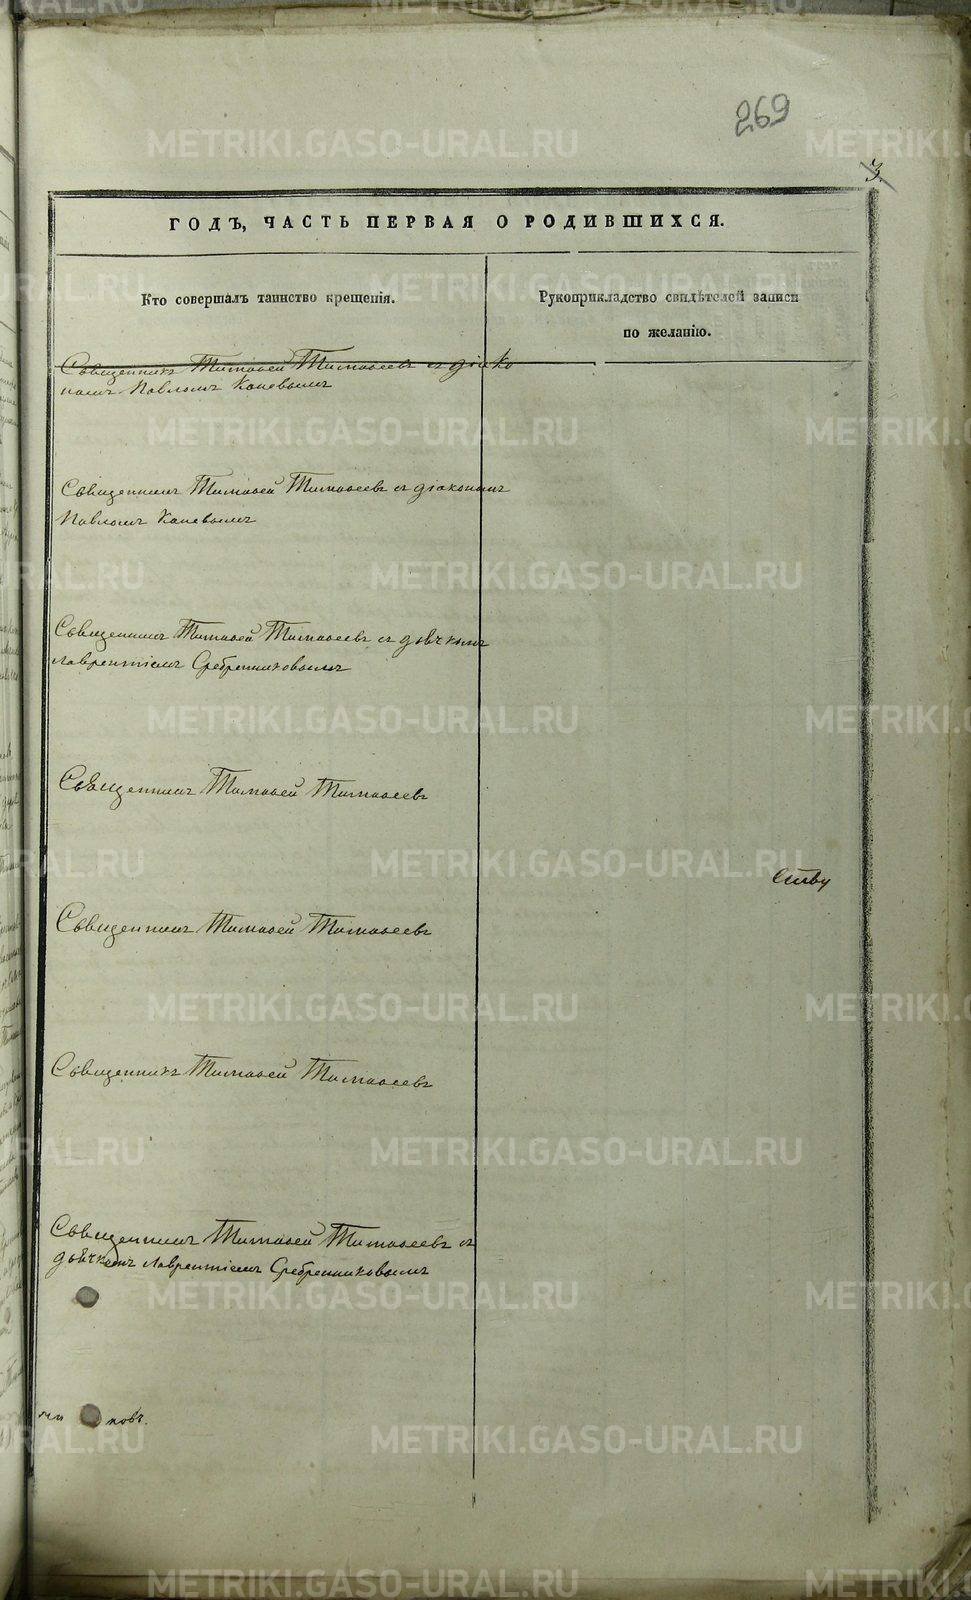 269
3.
ГОДЪ, ЧАСТЬ ПЕРВАЯ О РОДИВШИХСЯ.
Кто совершалъ таинство крещенія.
Рукоприкладство свидѣтелей записи
по желанію.
Священникъ Тимоѳей Тимоѳеевъ съ діако
номъ Павломъ Каневымъ
Священникъ Тимоѳей Тимоѳеевъ съ діакономъ
Павломъ Каневымъ
Священникъ Тимоѳей Тимоѳеевъ съ дьячкомъ
Лаврентіемъ Сребренниковымъ
Священникъ Тимоѳей Тимоѳеевъ
ству
Священникъ Тимоѳей Тимоѳеевъ
Священникъ Тимоѳей Тимоѳеевъ
Священникъ Тимоѳей Тимоѳеевъ съ
дьячкомъ Лаврентіемъ Сребренниковымъ
новъ.
METRIKI.GASO-URAL.RU